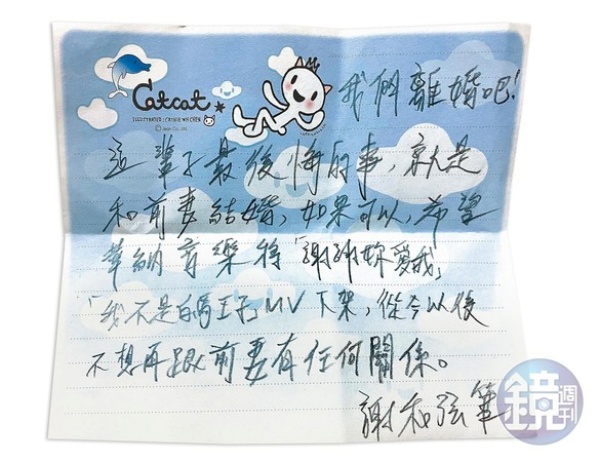 Catcat
我們離婚吧!
這輩子最後悔的事,就是
和前妻結婚,如果可以,希望
華納音樂將「謝謝妳愛我」
「我不是白馬王子」MV下架,從今以後
不想再跟前妻有任何關係。
謝和弦筆
鏡週刊